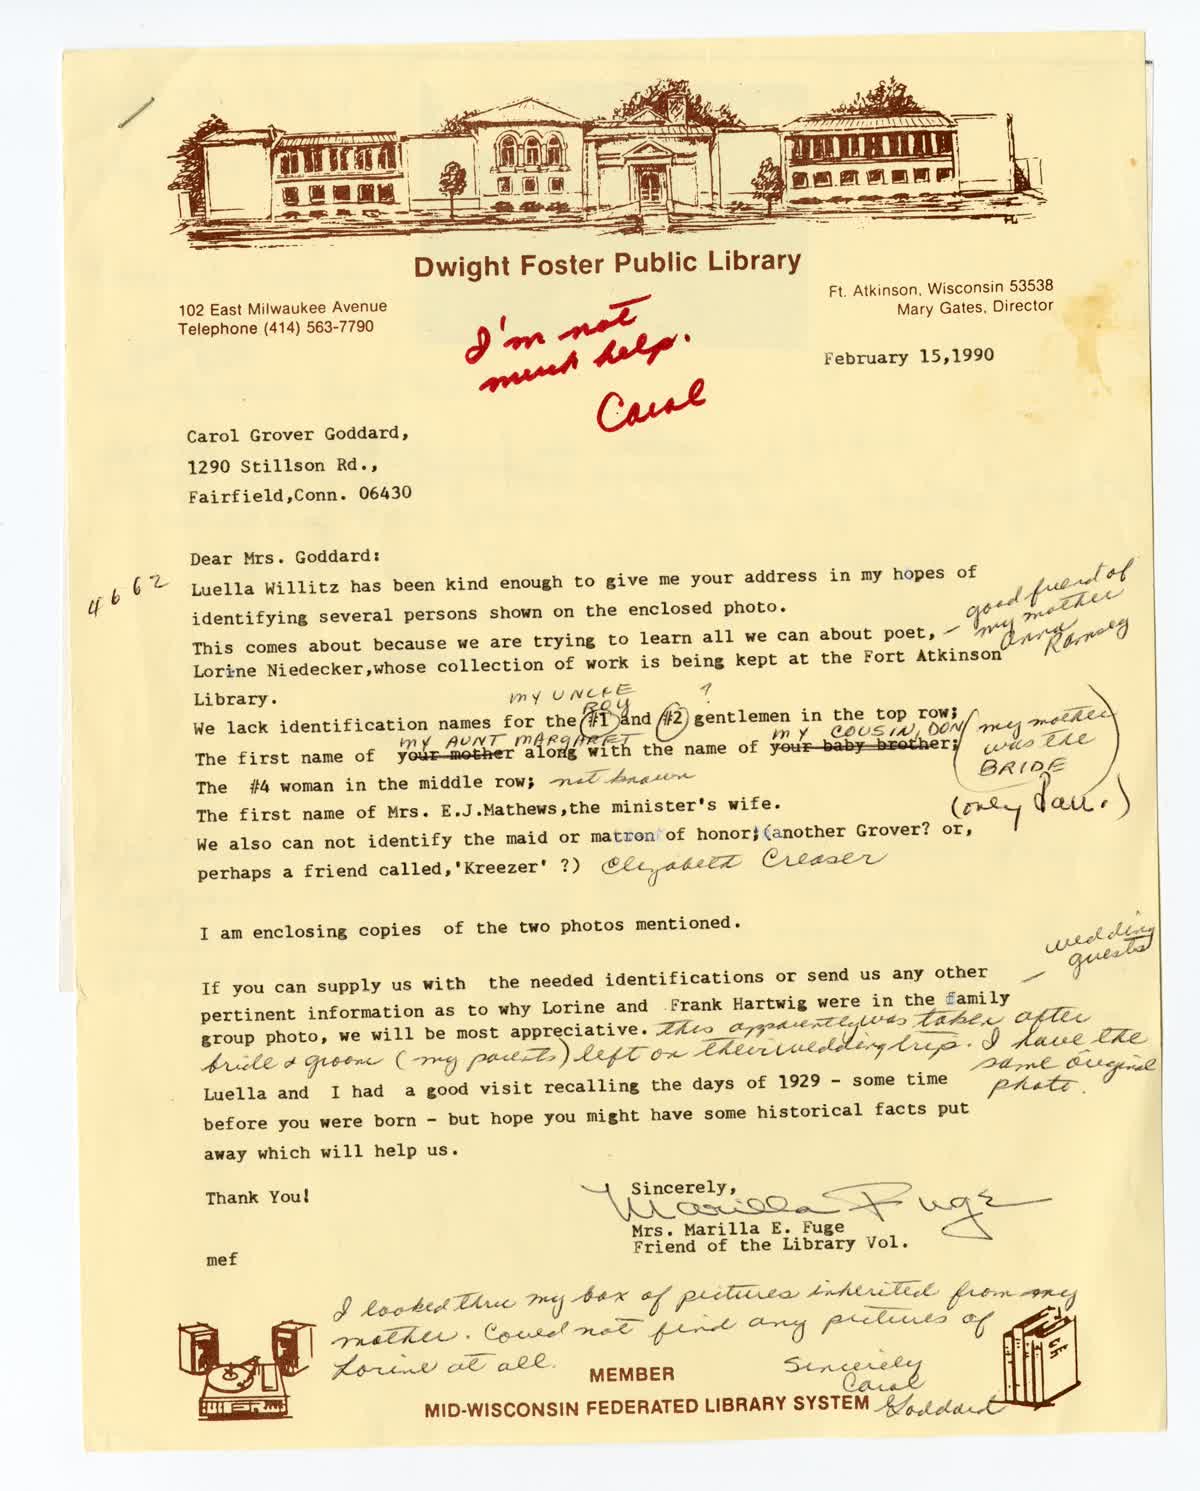 Dwight Foster Public Library
102 East Milwaukee Avenue
Telephone (414) 563-7790
Ft. Atkinson, Wisconsin 53538
Mary Gates, Director
I'm not
much help.
Carol
February 15,1990
Carol Grover Goddard,
1290 Stillson Rd.,
Fairfield,Conn. 06430
Dear Mrs. Goddard:
4662
Luella Willitz has been kind enough to give me your address in my hopes of
identifying several persons shown on the enclosed photo.
This comes about because we are trying to learn all we can about poet,
– good friend of
my mother
Anna
Ramsey
Lorine Niedecker,whose collection of work is being kept at the Fort Atkinson
Library.
MY UNCLE
ROY
?
We lack identification names for the #1 and #2 gentlemen in the top row;
MY AUNT MARGARET
MY COUSIN, DON
The first name of your mother along with the name of your baby brother;
(my mother
was the
BRIDE)
The #4 woman in the middle row; not known
The first name of Mrs. E.J.Mathews,the minister's wife.
We also can not identify the maid or matron of honor;(another Grover? or,
perhaps a friend called,'Kreezer' ?) Elizabeth Creaser
I am enclosing copies of the two photos mentioned.
If you can supply us with the needed identifications or send us any other
– wedding
guests
pertinent information as to why Lorine and Frank Hartwig were in the family
group photo, we will be most appreciative. this apparently was taken after
bride & groom (my parents) left on their wedding trip. I have the
same original
photo.
Luella and I had a good visit recalling the days of 1929 - some time
before you were born - but hope you might have some historical facts put
away which will help us.
Thank You!
Sincerely,
Marilla Fuge
Mrs. Marilla E. Fuge
Friend of the Library Vol.
mef
I looked thru my box of pictures inherited from my
mother. Could not find any pictures of
Lorine at all.
Sincerely
Carol
Goddard
MEMBER
MID-WISCONSIN FEDERATED LIBRARY SYSTEM